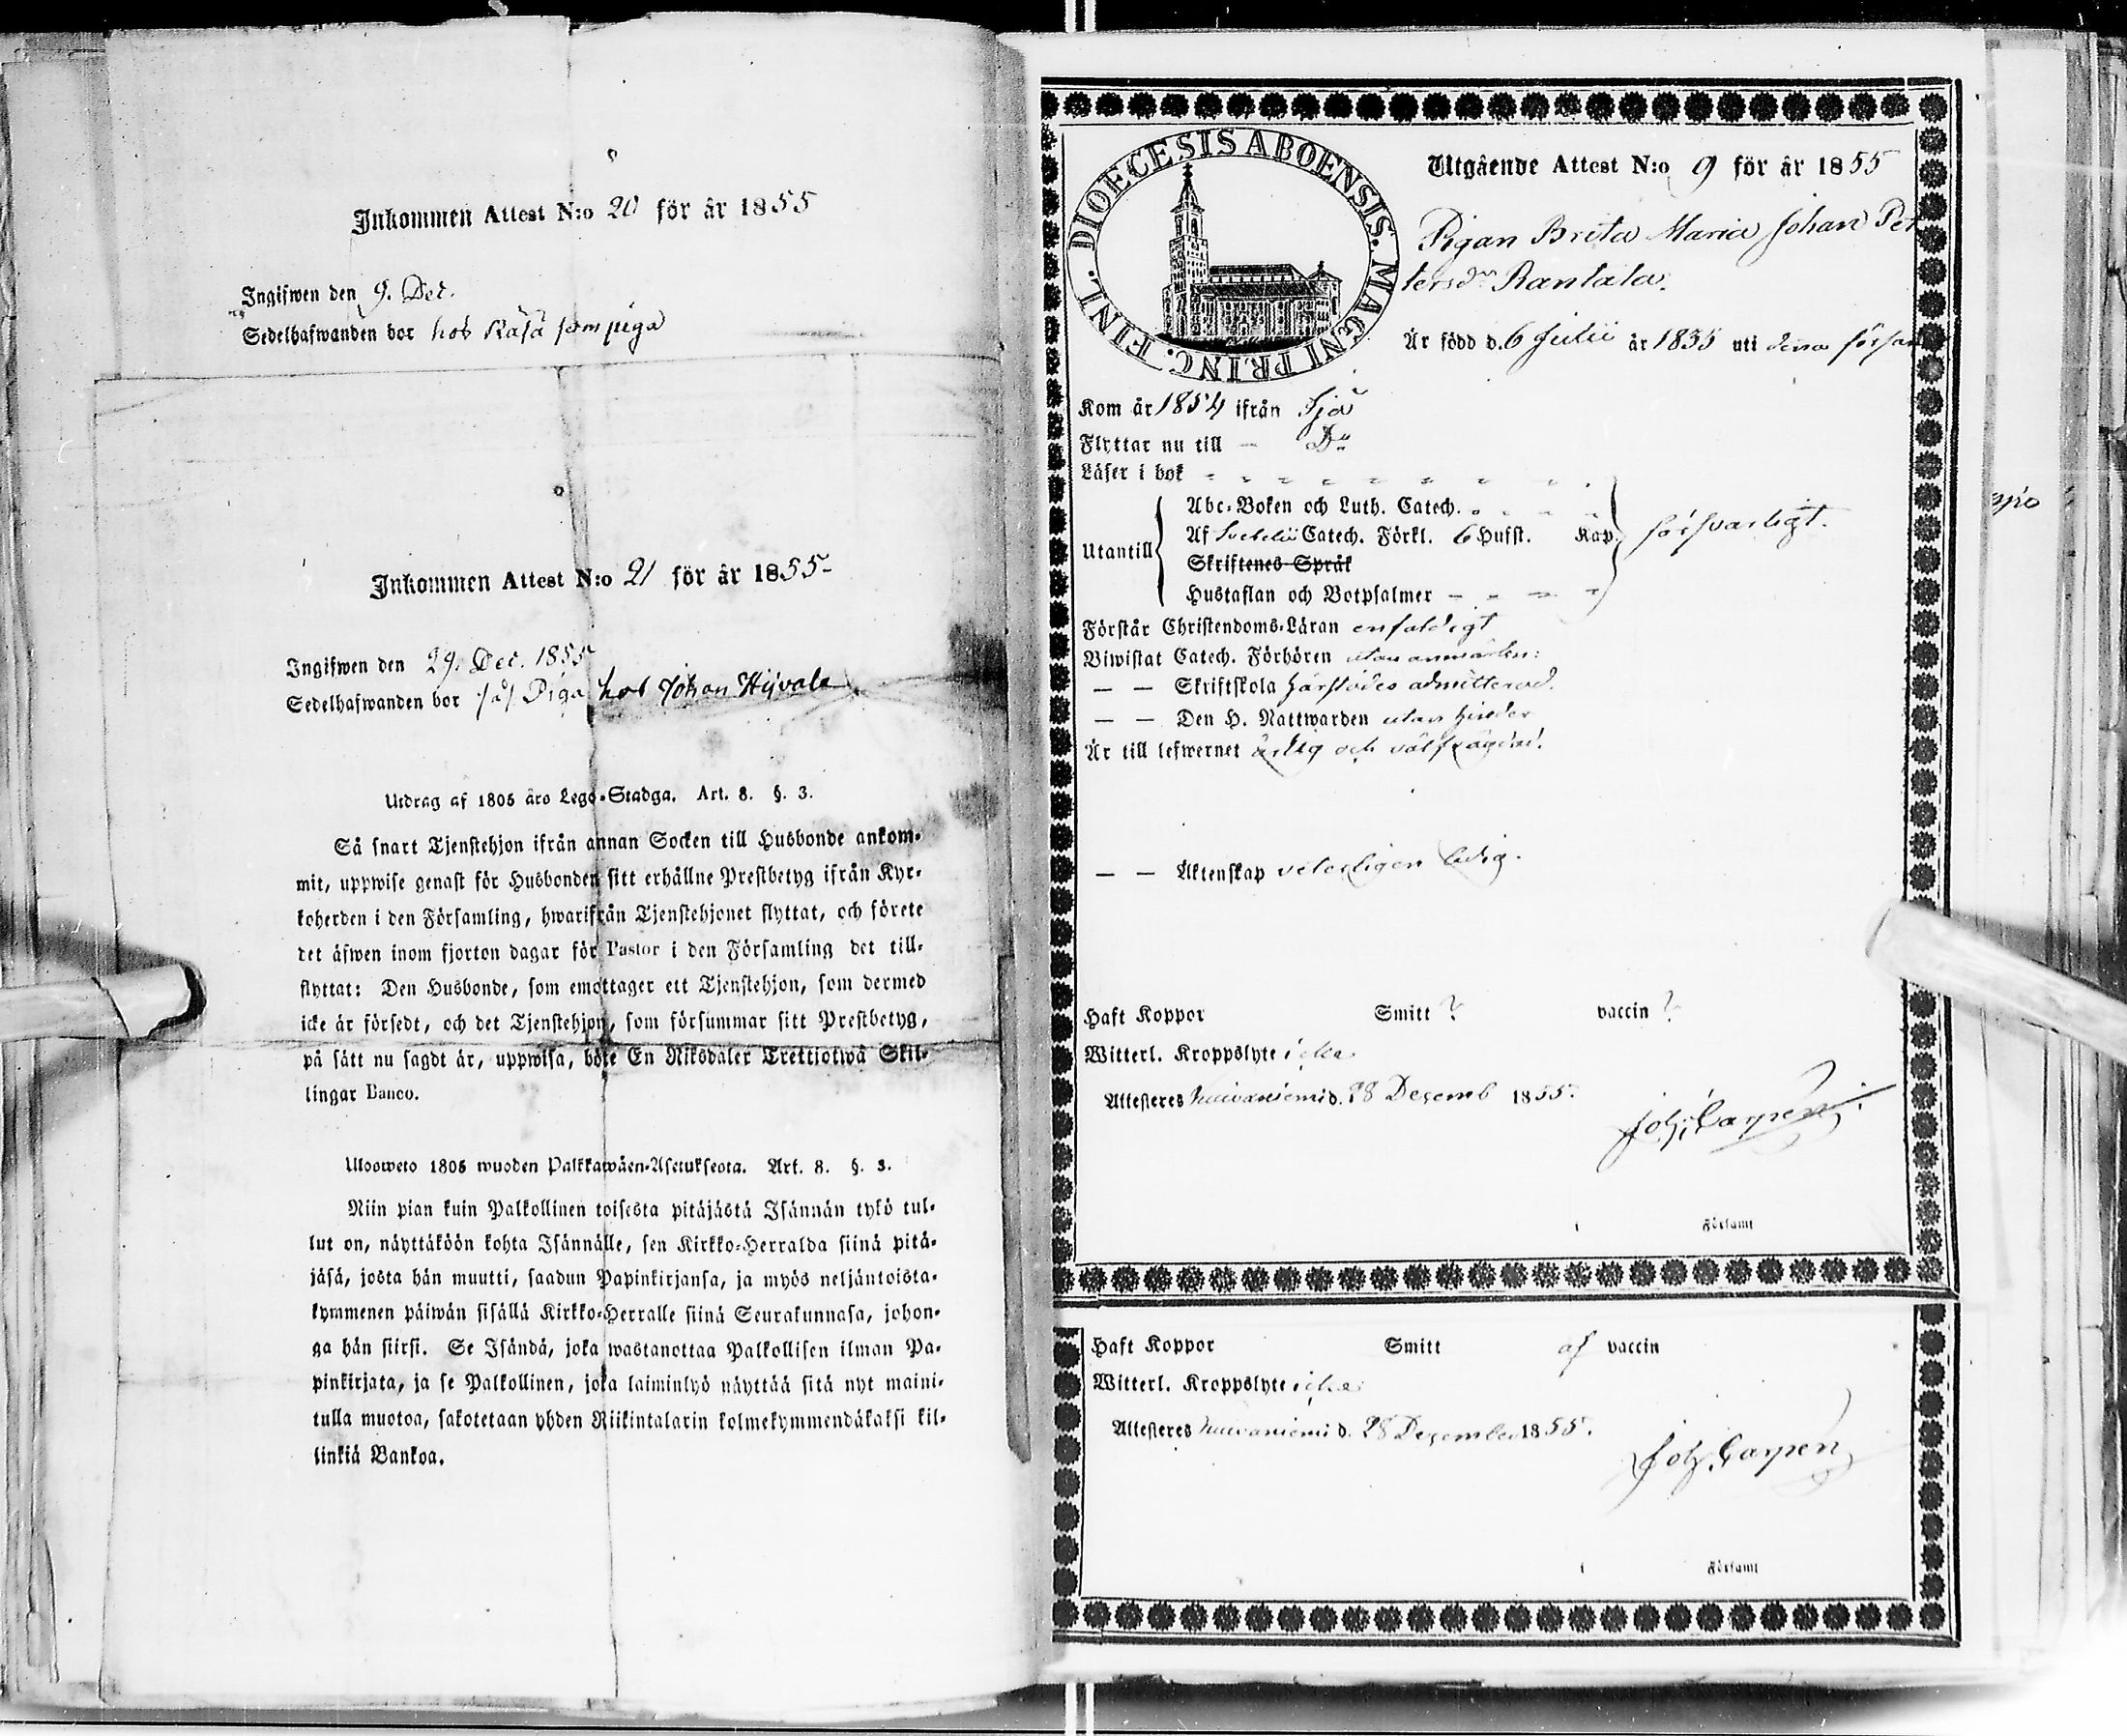 Inkommen Attest N:o 20 för år 1855
Ingifwen den 9. Dec.
Sedelhafwanden bor hos Räfsä som piga
Inkommen Attest N:o 21 för år 1855
Ingifwen den 29. Dec. 1855
Sedelhafwanden bor såsom Piga hos Johan Hyvälä
Utdrag af 1805 års Lego-Stadga. Art. 8. §. 3.
Så snart Tjenstehjon ifrån annan Socken till Husbonde ankom-
mit, uppwise genast för Husbonden sitt erhållne Prestbetyg ifrån Kyr-
koherden i den Församling, hwarifrån Tjenstehjonet flyttat, och förete
det äfwen inom fjorton dagar för Pastor i den Församling det till-
flyttat: Den Husbonde, som emottager ett Tjenstehjon, som dermed
icke är försedt, och det Tjenstehjon, som försummar sitt Prestbetyg,
på sätt nu sagdt är, uppwisa, böte En Riksdaler Trettiotwå Skil-
lingar Banco.
Uloosweto 1805 wuoden Palkkawäen-Asetuksesta. Art. 8. §. 3.
Niin pian kuin Palkollinen toisesta pitäjästä Isännän tykö tul-
lut on, näyttäköön kohta Isännälle, sen Kirkko-Herralda siinä pitä-
jäsä, josta hän muutti, saadun Papinkirjansa, ja myös neljäntoista-
kymmenen päiwän sisällä Kirkko-Herralle siinä Seurakunnasa, johon-
ga hän siirsi. Se Isändä, joka wastanottaa Palkollisen ilman Pa-
pinkirjata, ja se Palkollinen, joka laiminlyö näyttää sitä nyt maini-
tulla muotoa, sakotetaan yhden Riikintalarin kolmekymmendäkaksi kil-
linkiä Bankoa.
DIOECESIS ABOENSIS. MAGNI PRINC. FINL.
Utgående Attest N:o 9 för år 1855
Pigan Brita Maria Johan Pet
tersdr Rantala.
Är född d. 6 Julii år 1835 uti denna försam
Kom år 1854 ifrån Ijo
Flyttar nu till – Do
Läser i bok
Utantill
Abc-Boken och Luth. Catech.
Af Svebelii Catech. Förkl. 6 Hufst. Kap. försvarligt.
Skriftenes Språk
Hustaflan och Botpsalmer
Förstår Christendoms-Läran enfaldigt
Biwistat Catech. Förhören utan anmärkn:
— — Skriftskola härstädes admitterad.
— — Den H. Nattwarden utan hinder
Är till lefwernet ärlig och välfrägdad.
— — Äktenskap veterligen ledig.
Haft Koppor Smitt ? vaccin ?
Witterl. Kroppslyte icke
Attesteres Kuivaniemi d. 28 Decemb 1855.
Joh; Carpén
i Församl
Haft Koppor Smitt af vaccin
Witterl. Kroppslyte icke
Attesteres Kuivaniemi d. 28 December 1855.
Joh; Carpén
i Församl